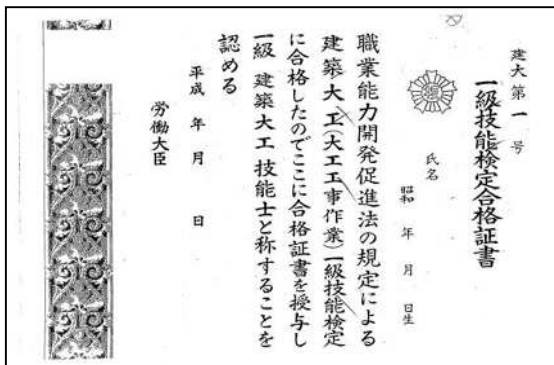 建大第一号
一級技能検定合格証書
氏名
昭和 年 月 日生
職業能力開発促進法の規定による
建築大工(大工工事作業)一級技能検定
に合格したのでここに合格証書を授与し
一級 建築大工 技能士と称することを
認める
平成 年 月 日
労働大臣